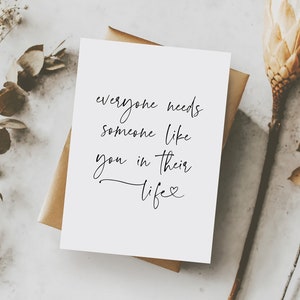 everyone needs
someone like
you in their
life